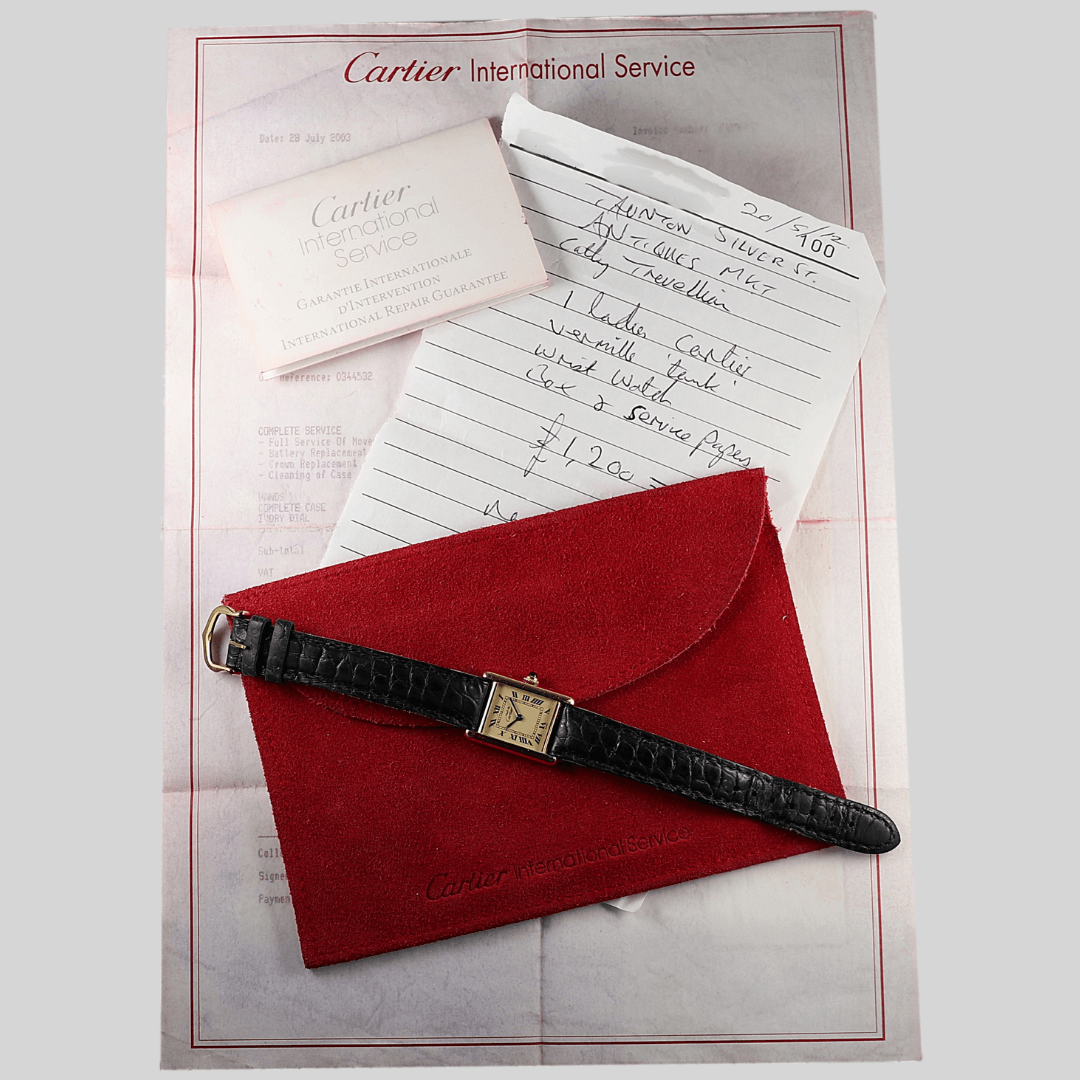 Cartier International Service
Date: 28 July 2003
Invoice Number:
Cartier
International
Service
GARANTIE INTERNATIONALE
D'INTERVENTION
INTERNATIONAL REPAIR GUARANTEE
20/5/12
100
TAUNTON SILVER ST.
ANTIQUES MKT
Cathy Trevellian
1 ladies Cartier
vermille 'tank'
wrist watch
Box & service papers
£1,200 =
Reference: 0344532
COMPLETE SERVICE
- Full Service Of Move
- Battery Replacement
- Crown Replacement
- Cleaning of Case
HANDS
COMPLETE CASE
IVORY DIAL
Sub-total
VAT
Coll
Signe
Paymen
Cartier International Service